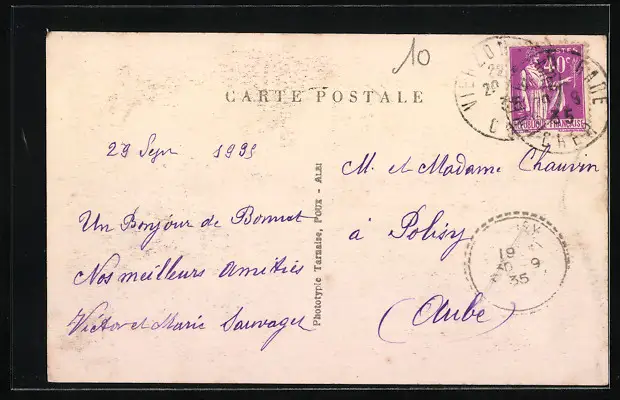 10
CARTE POSTALE
POSTES
40c
RÉPUBLIQUE FRANÇAISE
VIERZON GARE
CHER
35
29 Sept 1935
Un Bonjour de Bonnat
Nos meilleurs amitiés
Victor et Marie Sauvaget
Phototypie Tarnaise, POUX - ALBI
M. et Madame Chauvin
à Polisy
(Aube)
19
9
35